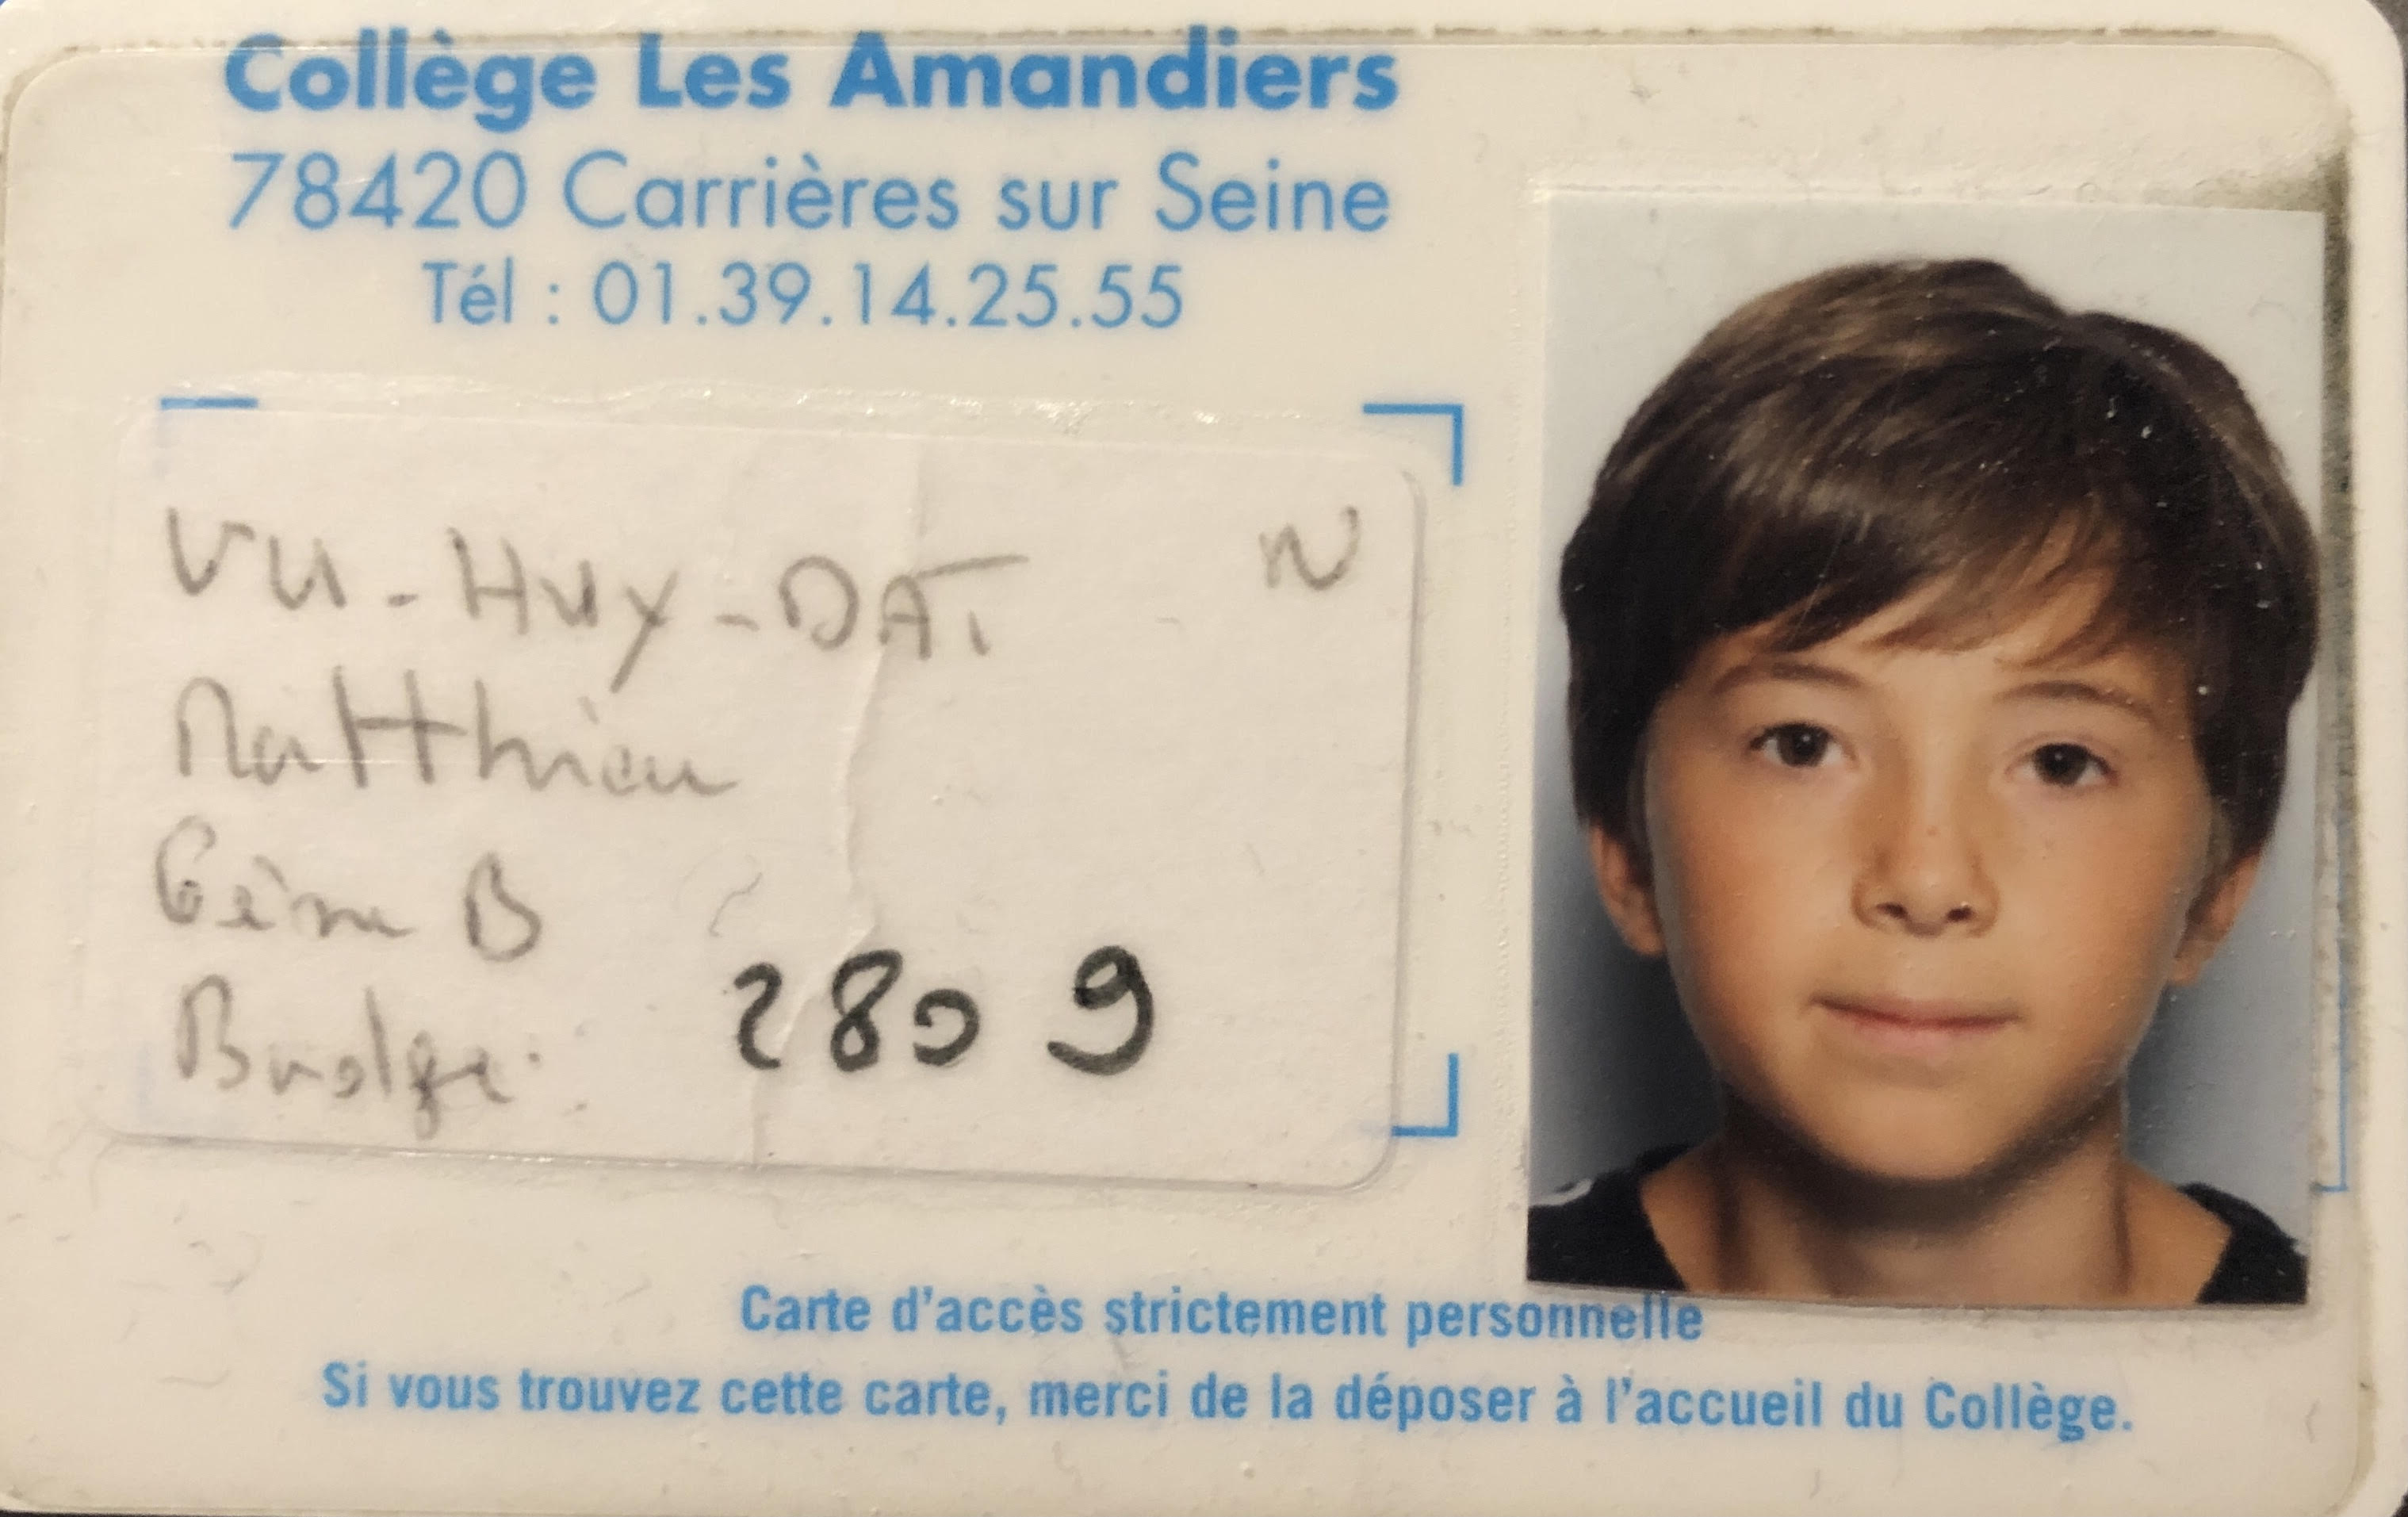 Collège Les Amandiers
78420 Carrières sur Seine
Tél : 01.39.14.25.55
VU-HUY-DAT N
Matthieu
6ème B
Badge: 2809
Carte d'accès strictement personnelle
Si vous trouvez cette carte, merci de la déposer à l'accueil du Collège.